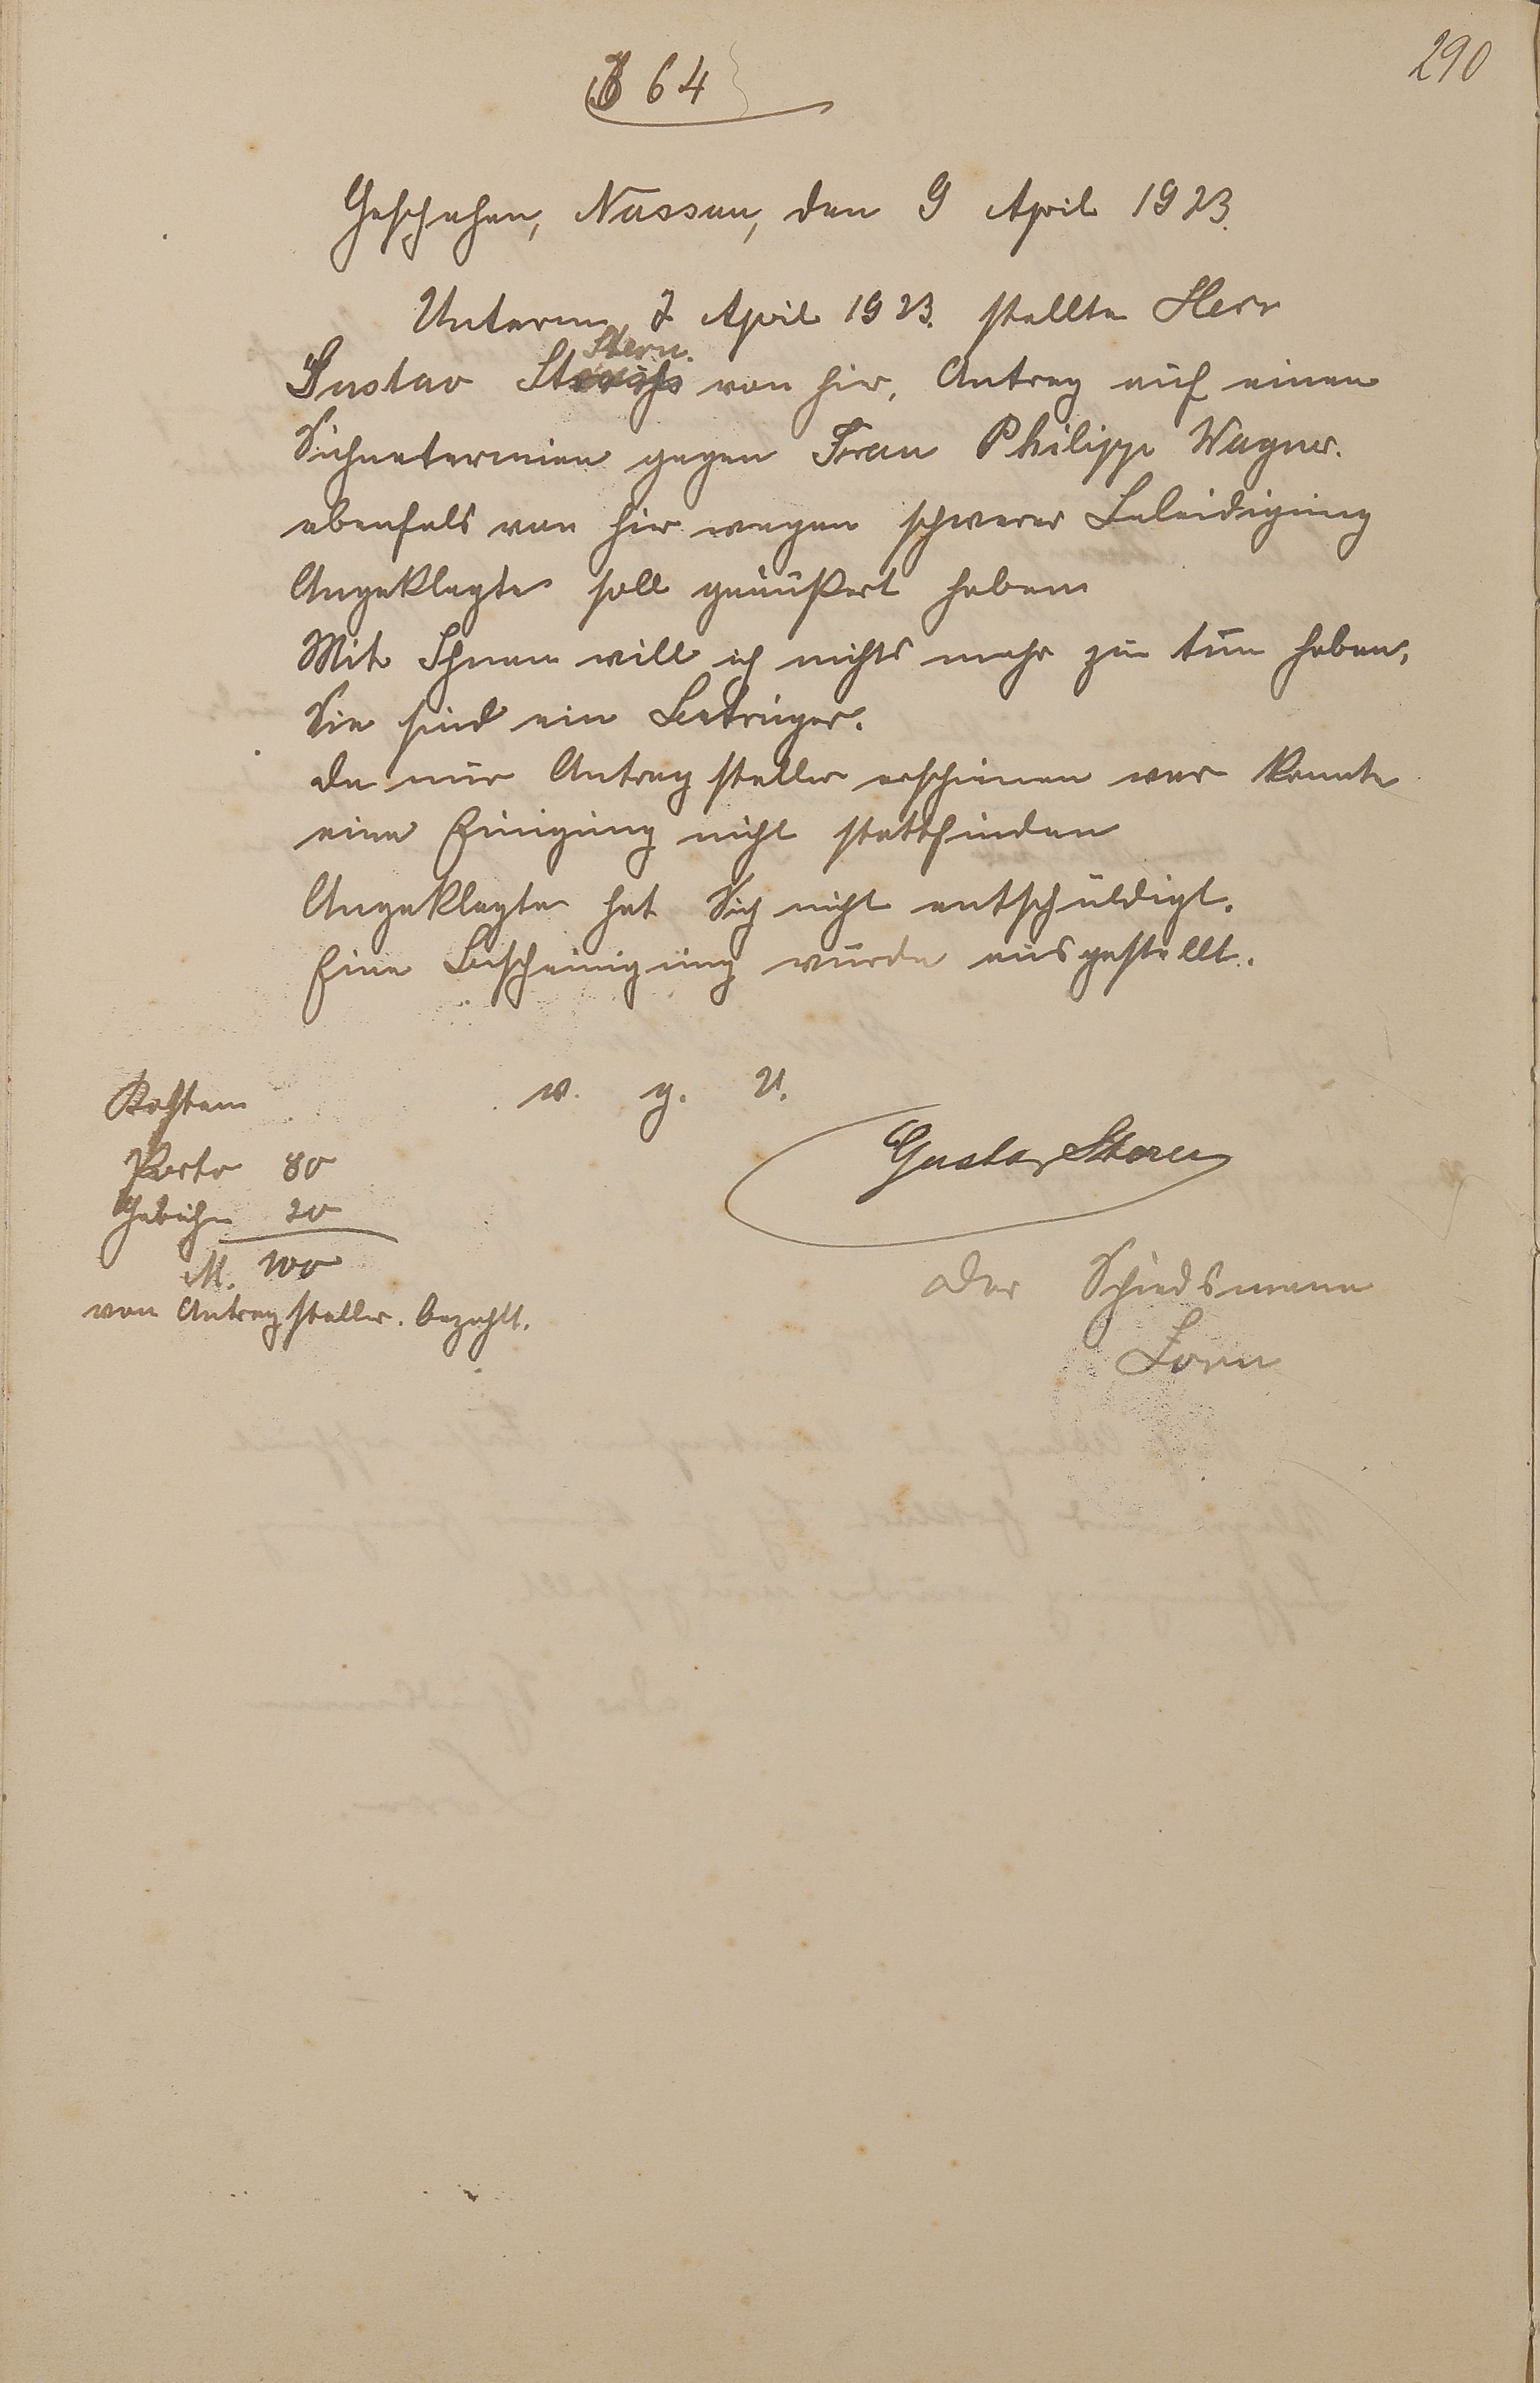 290
№ 64
Geschehen, Nassau, den 9 April 1923.
Unterm 7 April 1923. stellte Herr
Stern.
Gustav von hier, Antrag auf einen
Sühnetermien gegen Frau Philipp Wagner.
ebenfals von hier wegen schwerer Beleidigung
Angeklagte soll geäußert haben
Mit Ihnen will ich nichts mehr zu tun haben,
Sie sind ein Betrüger.
da nur Antragsteller erschienen war konnte
eine Einigung nicht stattfinden
Angeklagte hat Sich nicht entschuldigt.
Eine Bescheinigung wurde ausgestellt.
v. g. U.
Gustav Stern
Der Schiedsmann
Zorn
Kosten
Porto 80
Gebühr 20
M. 100
von Antragsteller. bezahlt.